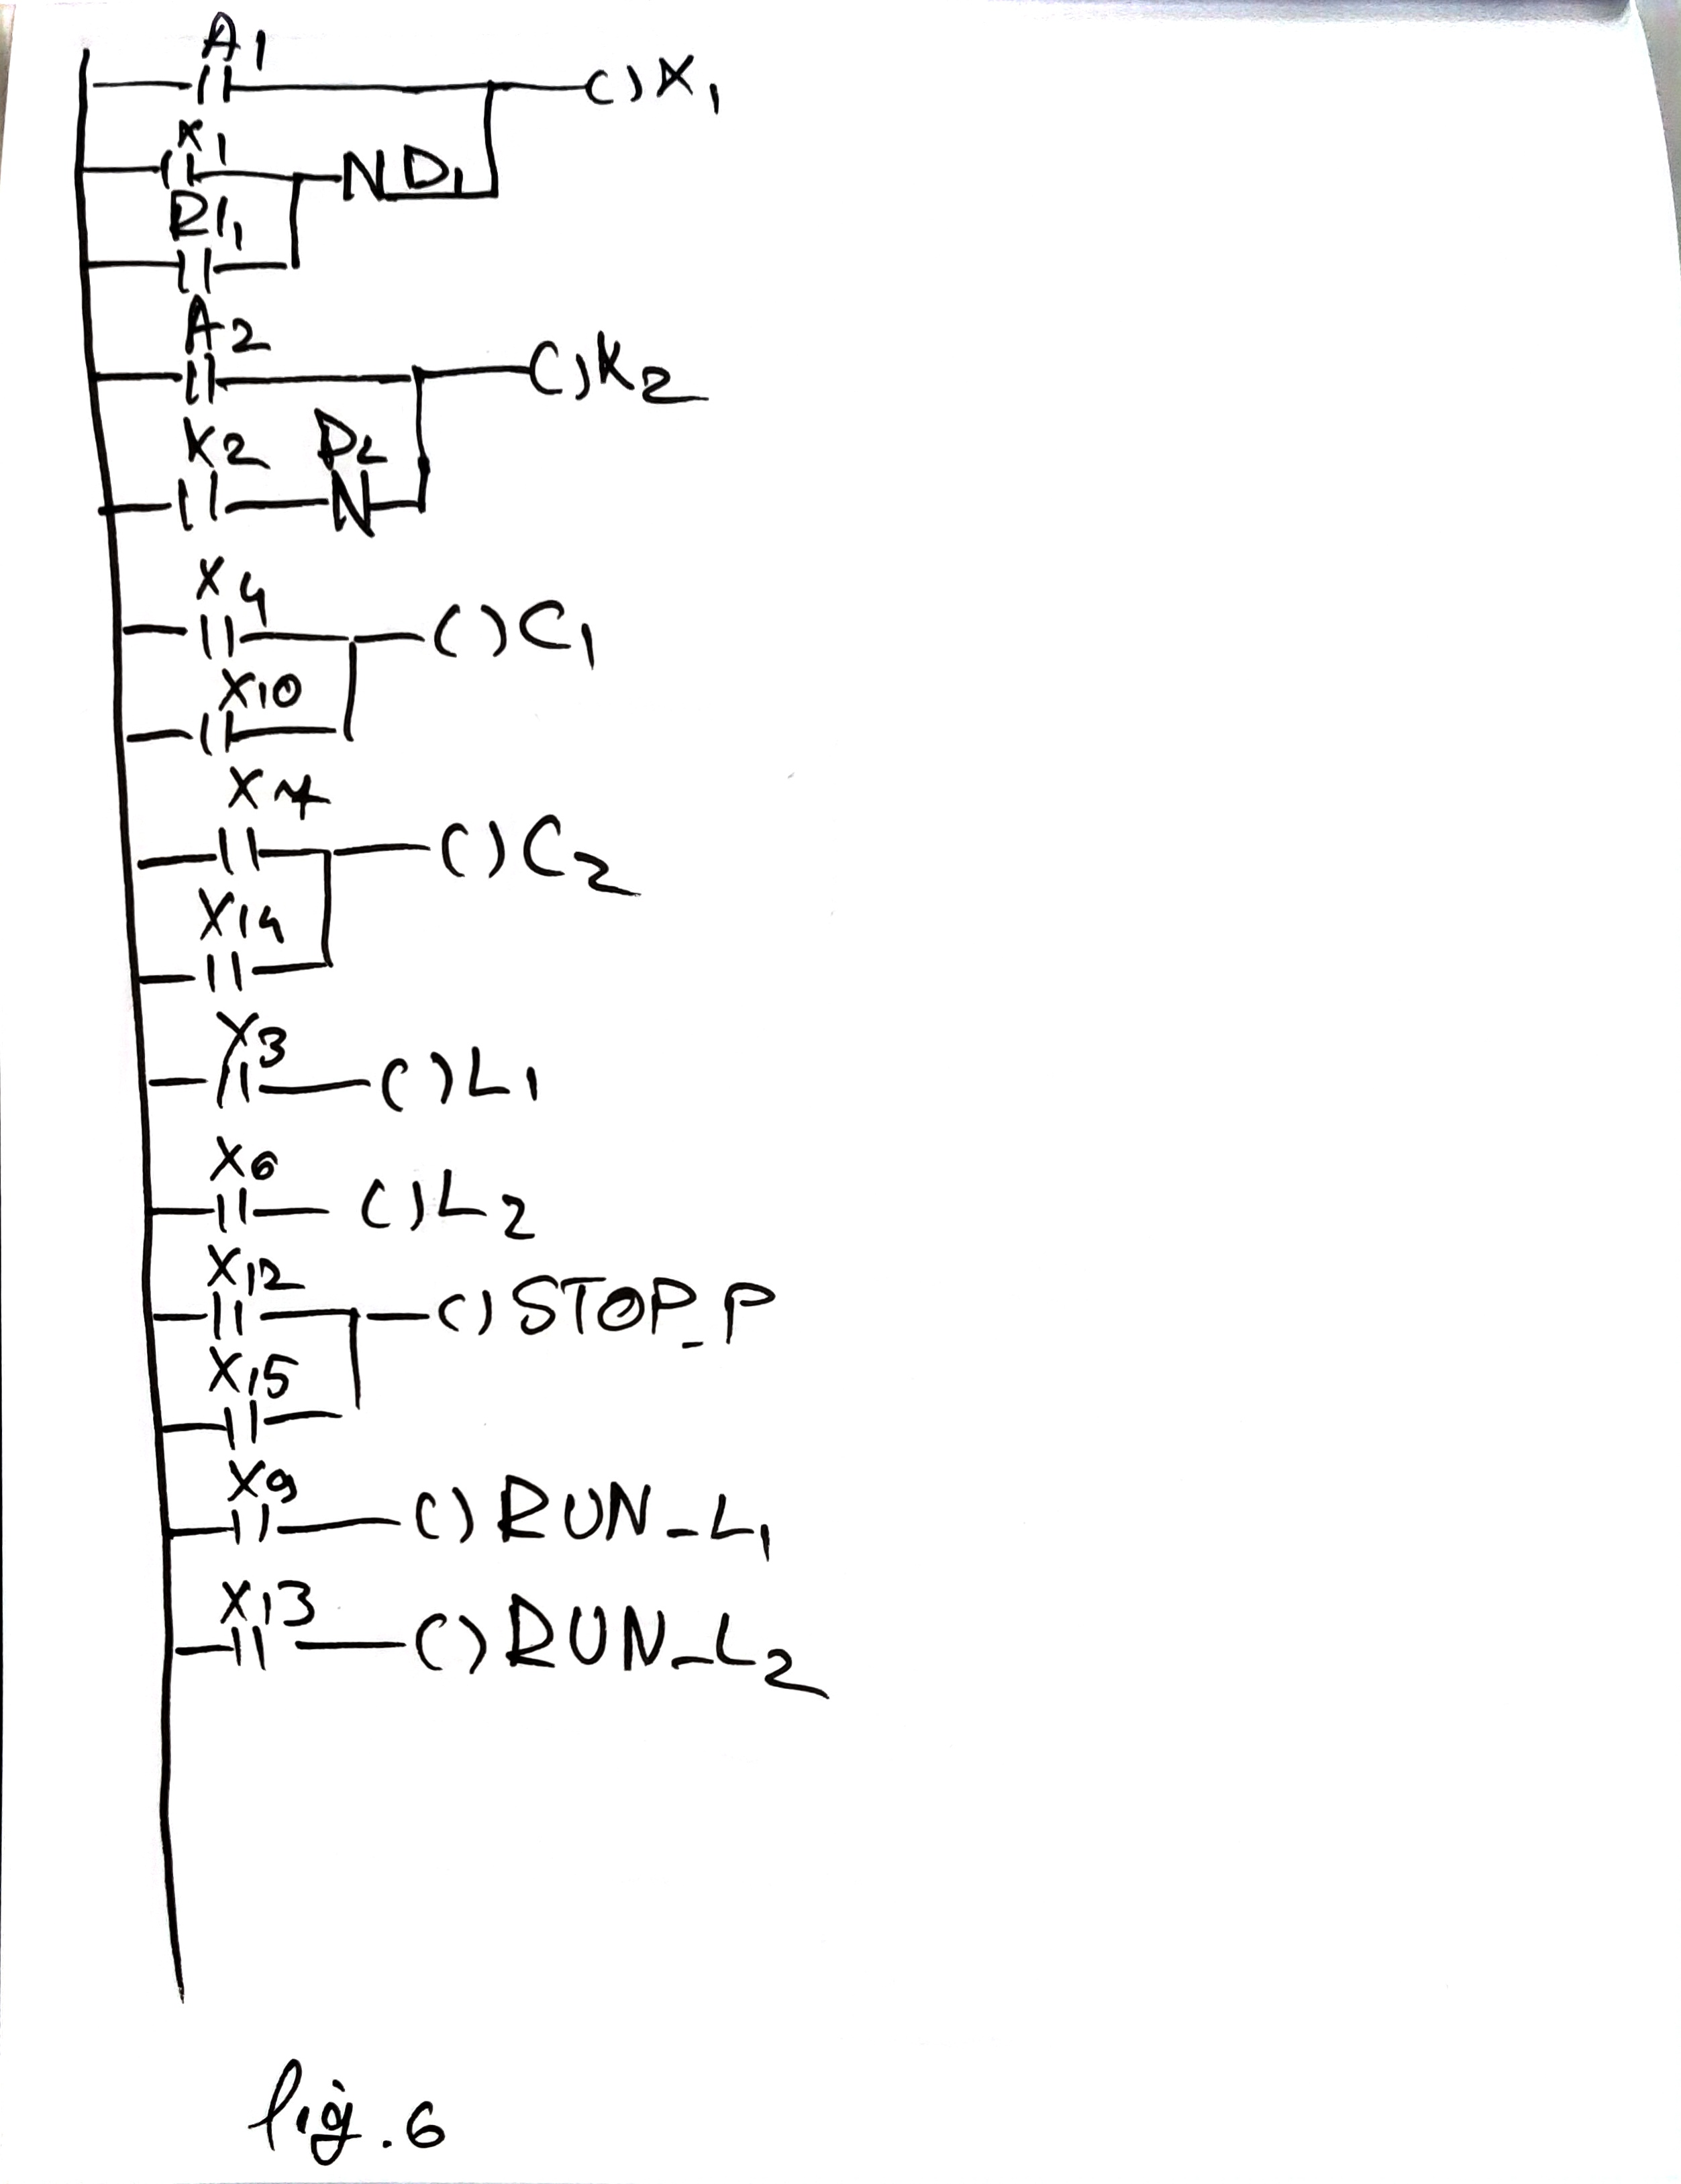 A1
( ) X1
X1
N D1
R11
A2
( ) K2
K2 D2
N
X4
( ) C1
X10
X7
( ) C2
X14
X3
( ) L1
X6
( ) L2
X12
( ) STOP_P
X15
X9
( ) RUN_L1
X13
( ) RUN_L2
fig. 6